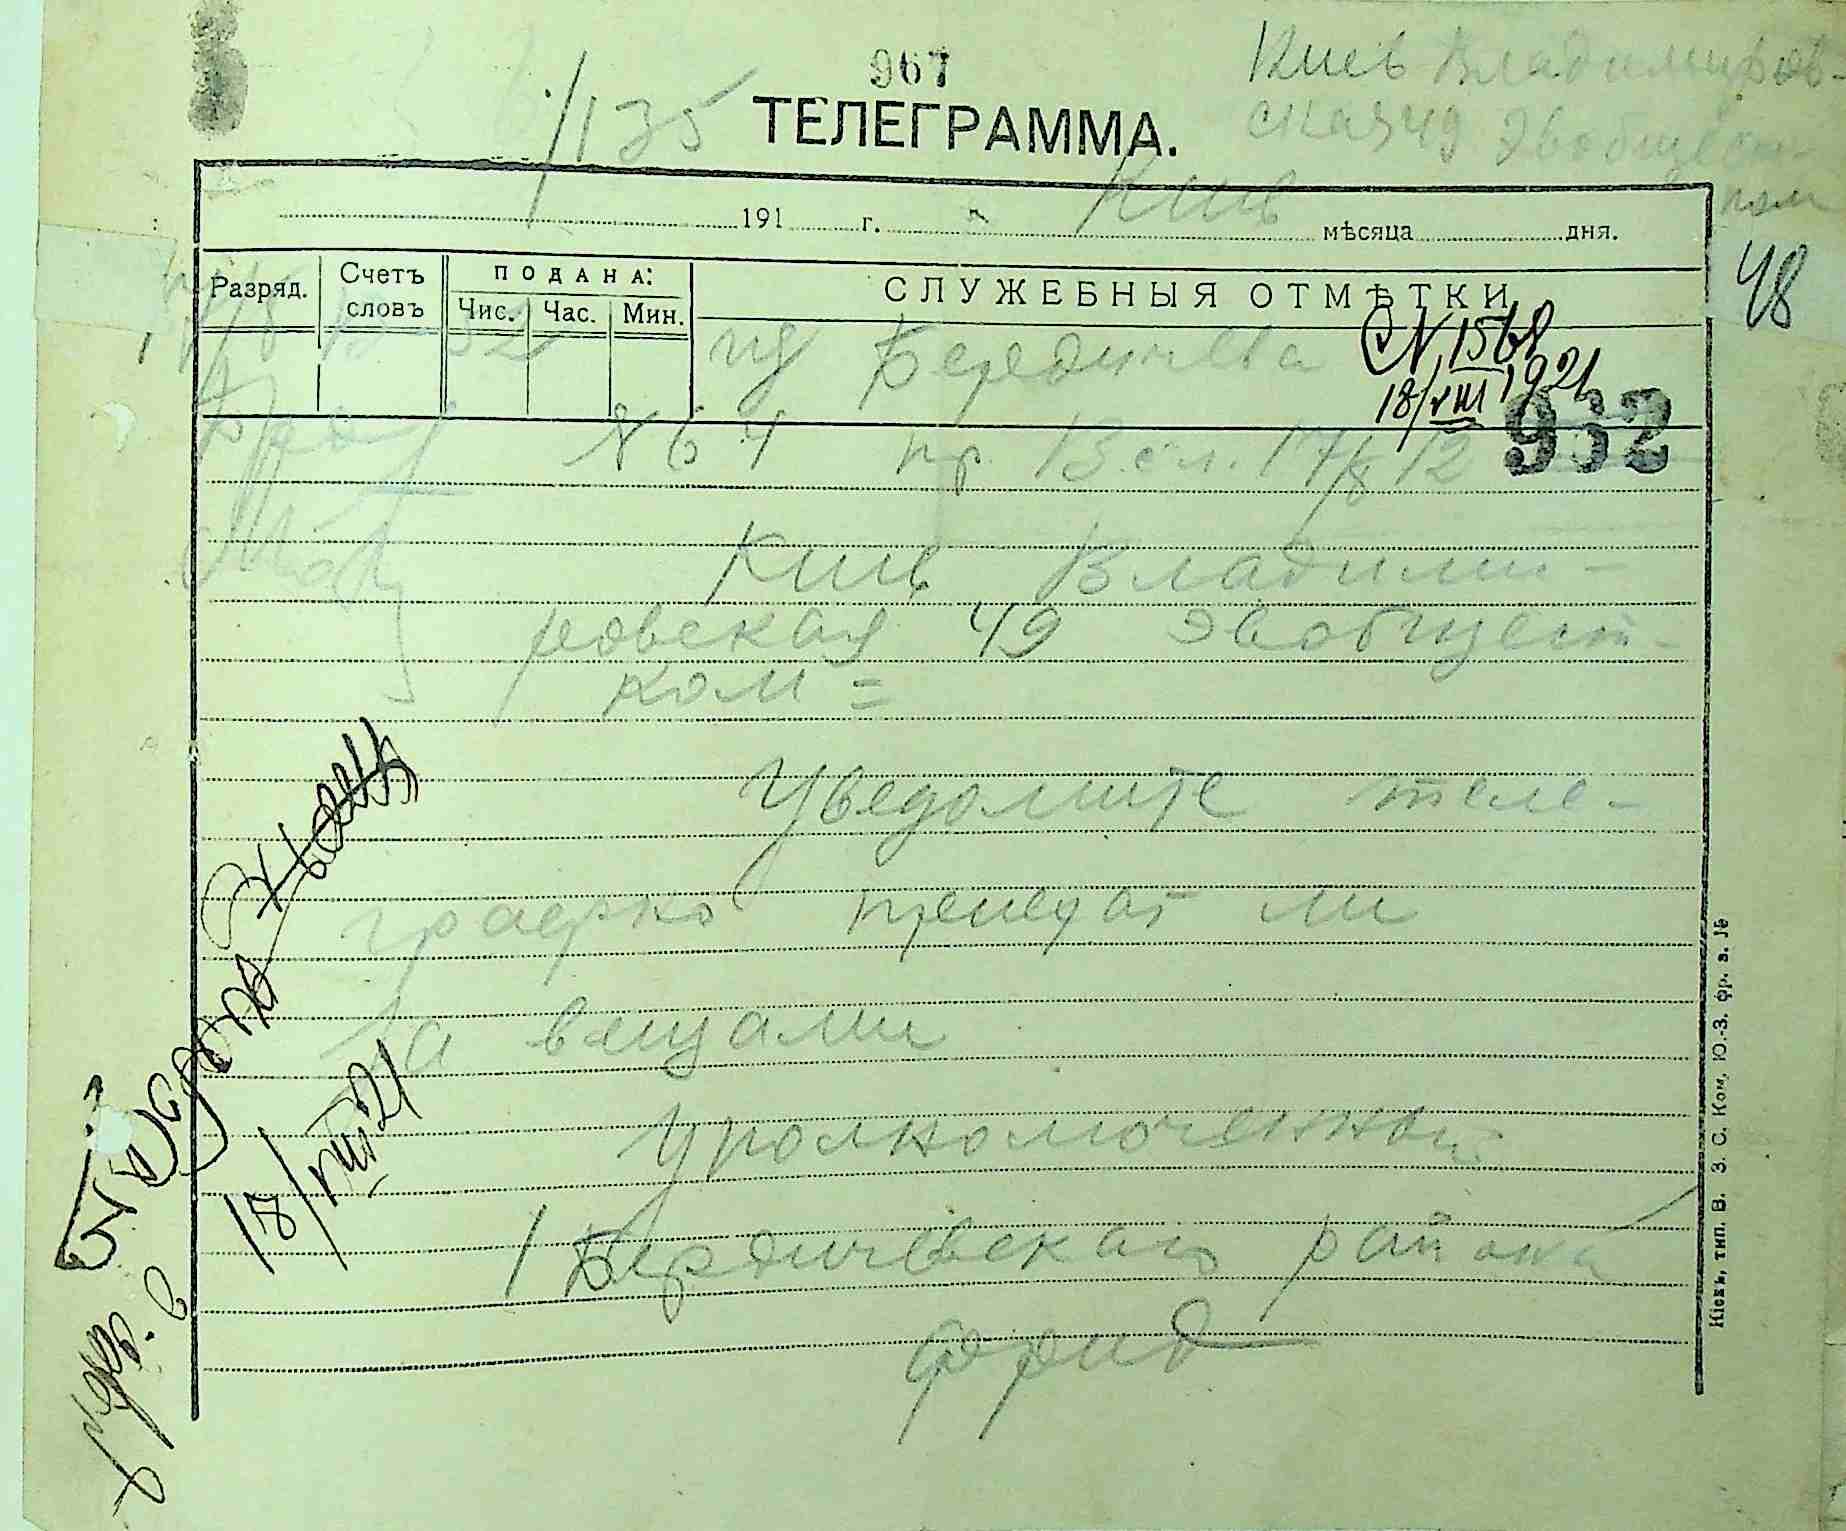 967
Киев Владимиров-
ская 49 Эвобщест-
ком
1/135
ТЕЛЕГРАММА.
191 г. Киев мѣсяца дня.
48
Разряд. Счетъ словъ ПОДАНА: Чис. Час. Мин. СЛУЖЕБНЫЯ ОТМѢТКИ
из Бердичева
N 1568
18/VIII 1921
932
N 64 пр. 13 сл. 17/8 12
Киев Владими-
ровская 49 Эвобщест-
ком =
Уведомите теле-
графно приедат ли
за вещами
Уполномоченный
Бердичевскаго района
Фрид
18/VIII 21
Кіевъ, тип. В. З. С. Ком. Ю.-З. фр. з. №